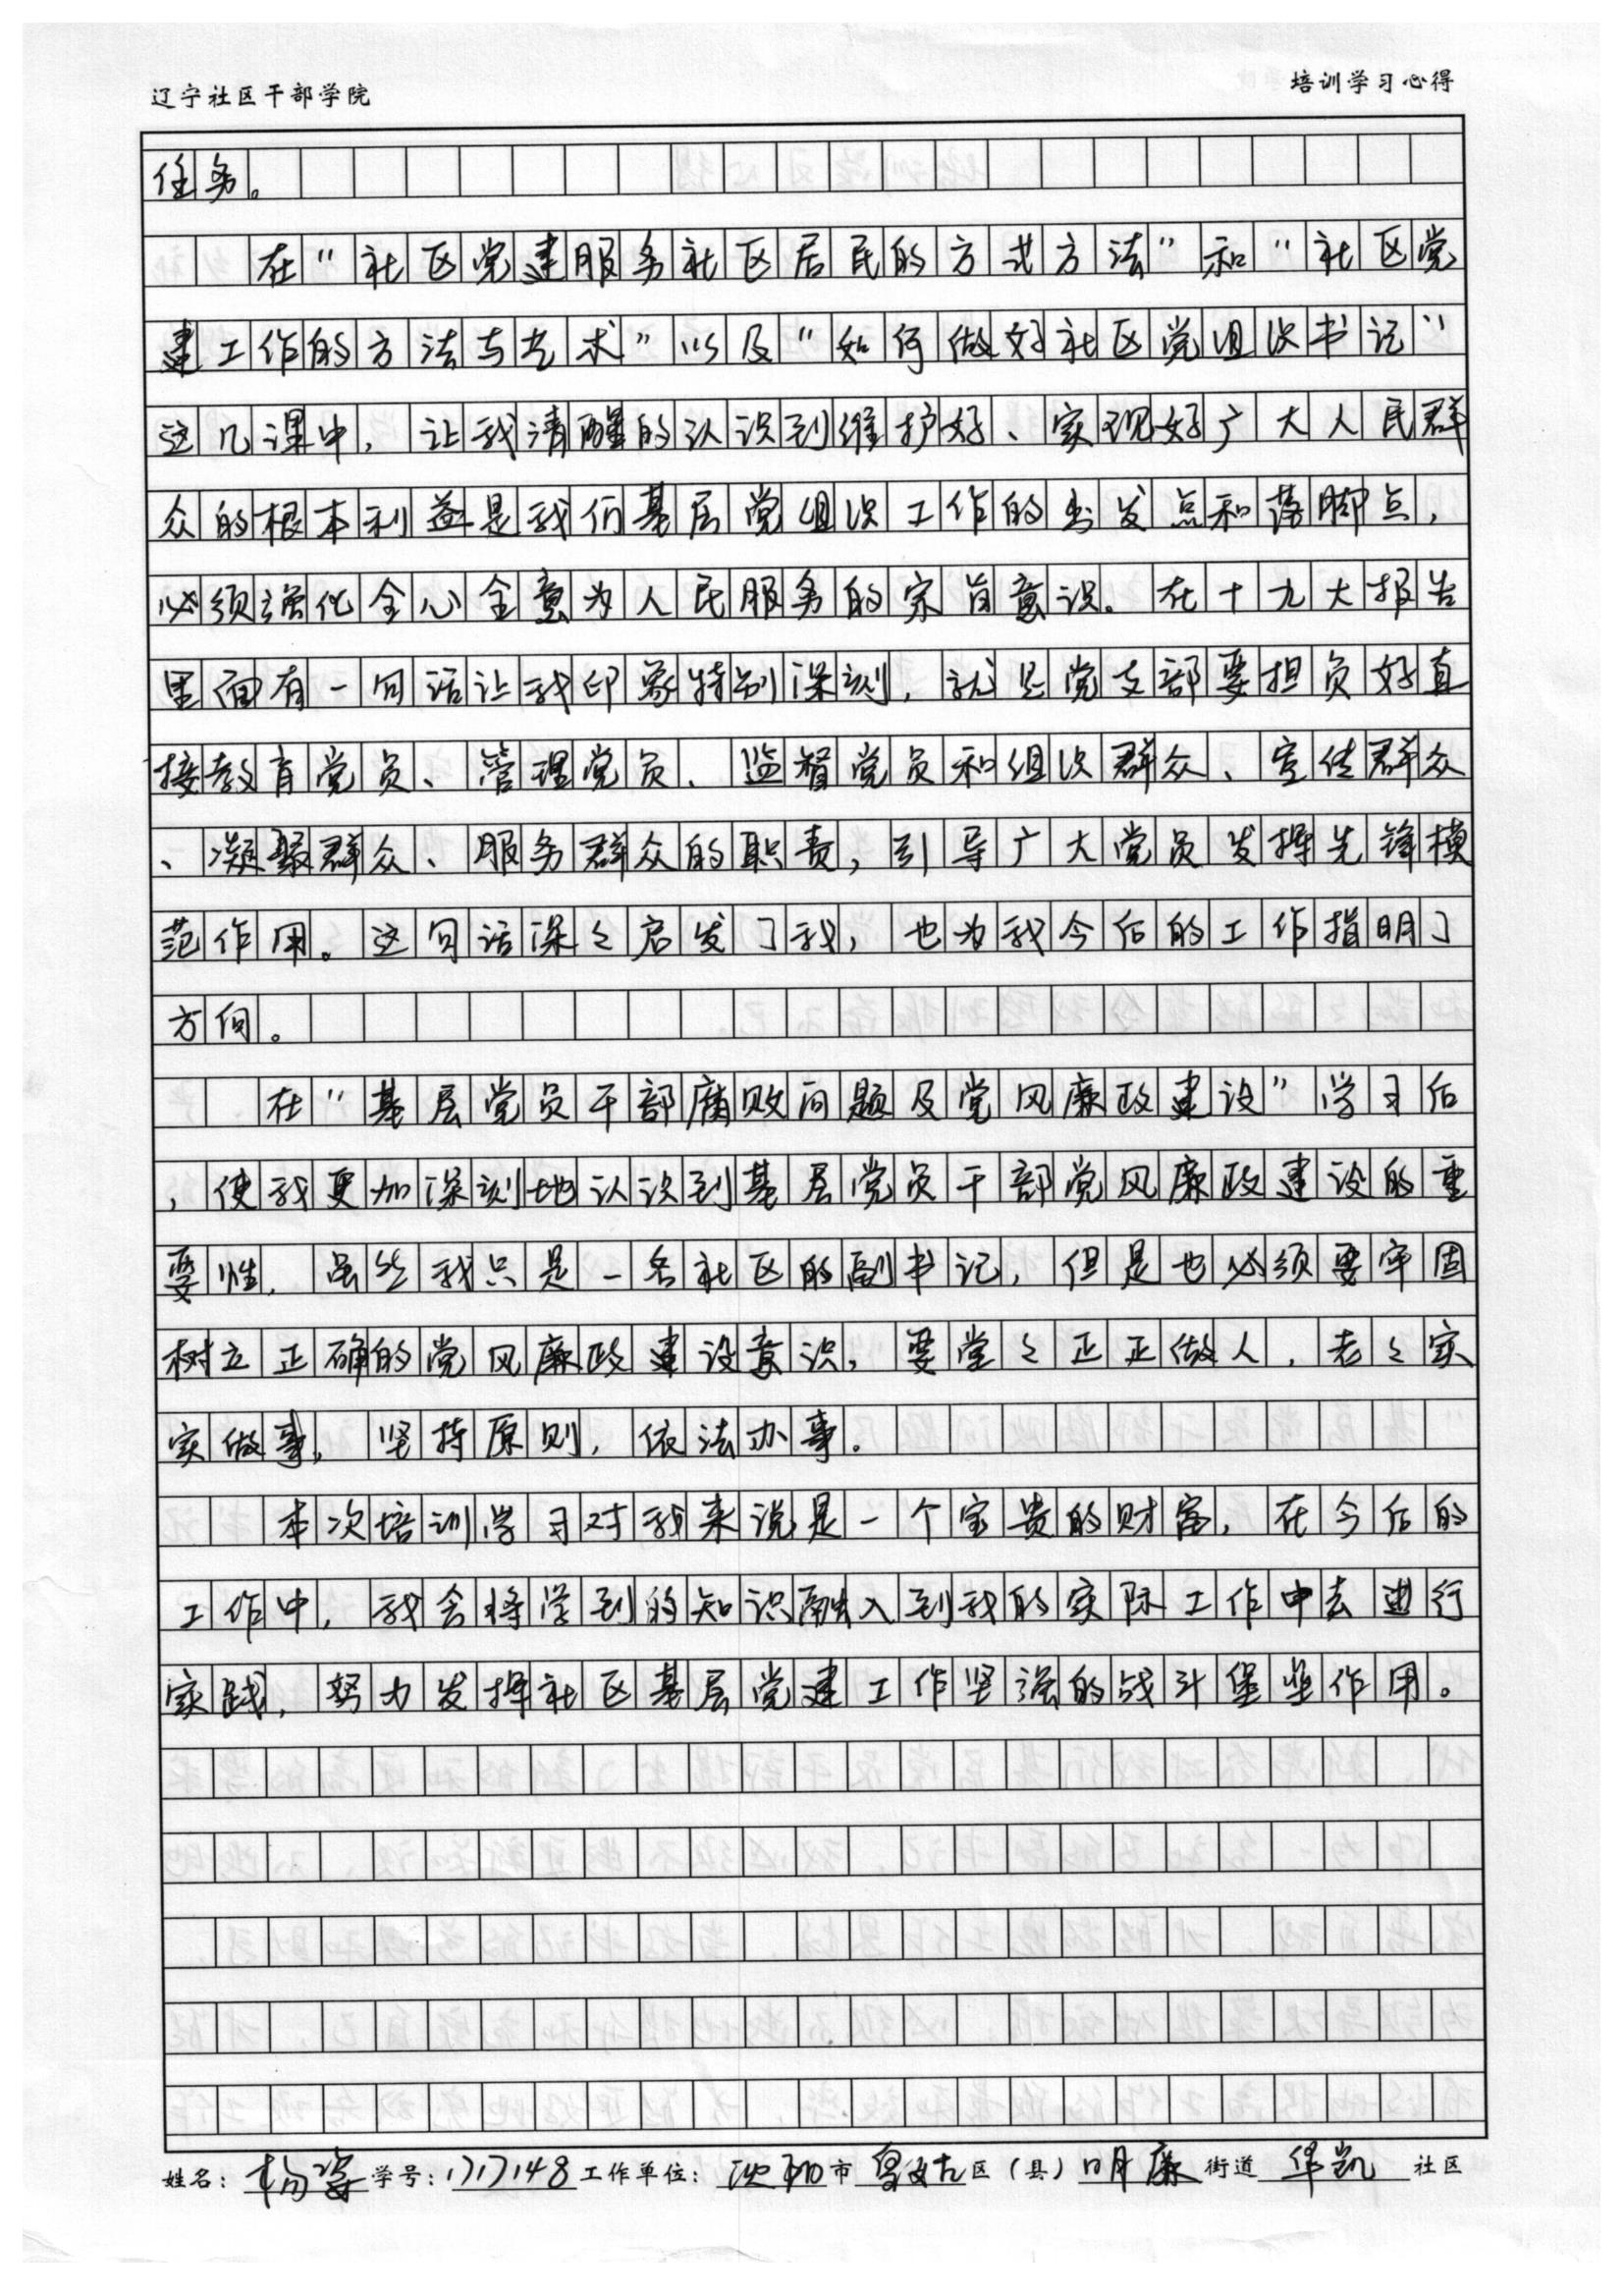 辽宁社区干部学院 培训学习心得
任务。
在"社区党建服务社区居民的方式方法"和"社区党
建工作的方法与艺术"以及"如何做好社区党组织书记"
这几课中，让我清醒的认识到维护好、实现好广大人民群
众的根本利益是我们基层党组织工作的出发点和落脚点，
必须强化全心全意为人民服务的宗旨意识。在十九大报告
里面有一句话让我印象特别深刻，就是党支部要担负好直
接教育党员、管理党员、监督党员和组织群众、宣传群众
、凝聚群众、服务群众的职责，引导广大党员发挥先锋模
范作用。这句话深々启发了我，也为我今后的工作指明了
方向。
在"基层党员干部腐败问题及党风廉政建设"学习后
，使我更加深刻地认识到基层党员干部党风廉政建设的重
要性，虽然我只是一名社区的副书记，但是也必须要牢固
树立正确的党风廉政建设意识，要堂々正正做人，老々实
实做事，坚持原则，依法办事。
本次培训学习对我来说是一个宝贵的财富，在今后的
工作中，我会将学到的知识融入到我的实际工作中去进行
实践，努力发挥社区基层党建工作坚强的战斗堡垒作用。
姓名：杨 学号：1717148 工作单位：沈阳市皇姑区（县）明廉街道华凯社区